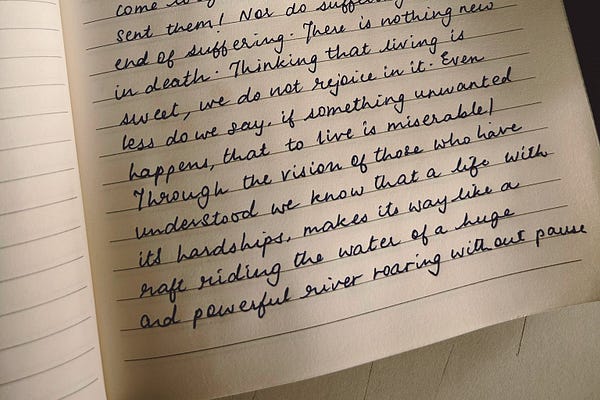 come to
sent them! Nor do suffering
end of suffering. There is nothing new
in death. Thinking that living is
sweet, we do not rejoice in it. Even
less do we say, if something unwanted
happens, that to live is miserable!
Through the vision of those who have
understood we know that a life with
its hardships, makes its way like a
raft riding the water of a huge
and powerful river roaring without pause